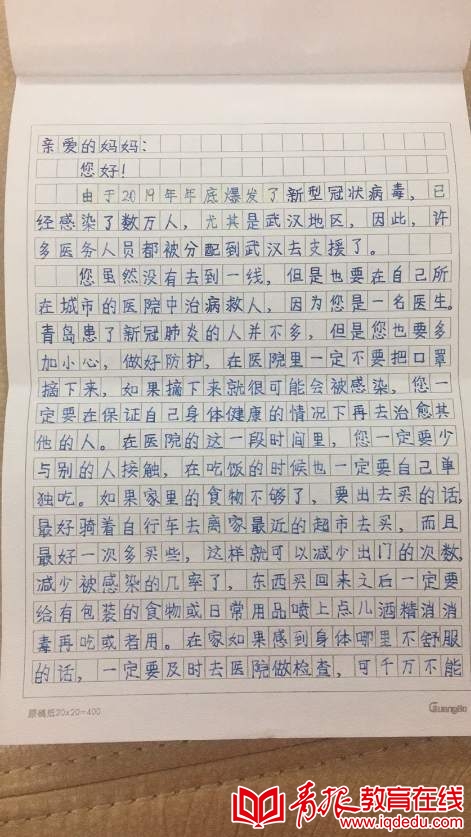 亲爱的妈妈：
您好！
由于2019年年底爆发了新型冠状病毒，已
经感染了数万人，尤其是武汉地区，因此，许
多医务人员都被分配到武汉去支援了。
您虽然没有去到一线，但是也要在自己所
在城市的医院中治病救人，因为您是一名医生。
青岛患了新冠肺炎的人并不多，但是您也要多
加小心，做好防护，在医院里一定不要把口罩
摘下来，如果摘下来就很可能会被感染，您一
定要在保证自己身体健康的情况下再去治愈其
他的人。在医院的这一段时间里，您一定要少
与别的人接触，在吃饭的时候也一定要自己单
独吃。如果家里的食物不够了，要出去买的话，
最好骑着自行车去离家最近的超市去买，而且
最好一次多买些，这样就可以减少出门的次数，
减少被感染的几率了，东西买回来之后一定要
给有包装的食物或日常用品喷上点儿酒精消消
毒再吃或者用。在家如果感到身体哪里不舒服
的话，一定要及时去医院做检查，可千万不能
原稿纸20×20=400
GuangBo
青报教育在线
www.iqdedu.com